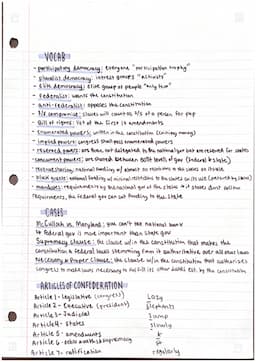 VOCAB
- participatory democracy: everyone "participation trophy"
- pluralist democracy: interest groups "activists"
- elite democracy: elite group of people "only few"
- Federalist: wants the constitution
- anti-federalist: opposes the constitution
- 3/5 compromise: slaves will count as 3/5 of a person for pop
- Bill of rights: 1st of the first 10 amendments
- Enumerated powers: written in the constitution (coining money)
- implied powers: congress shall pass enumerated powers
- reserved powers: are those not delegated to the national gov but are reserved for states
- concurrent powers: are shared between both levels of gov (federal & state)
- revenue sharing: national funding w/ almost no restrictions to the states on its use
- block grants: national funding w/ minimal restrictions to the states on its use
- mandates: requirements by the national gov on the states if states don't follow
requirements, the federal gov can cut funding to that state
CASES
McCulloch vs. Maryland: you can't tax national bank
federal gov is more important than state gov
Supremacy clause: the clause w/in the constitution that makes the
constitution & federal laws stemming from it authoritative over all other laws
Necessary & Proper clause: the clause w/in the constitution that authorizes
congress to make laws necessary to fulfill its other duties est. by the constitution
ARTICLES OF CONFEDERATION
Article 1 - legislative (congress) Lazy
Article 2 - Executive (president) Elephants
Article 3 - Judicial Jump
Article 4 - States Slowly
Article 5 - amendments
Article 6 - supremacy
Article 7 - ratification regularly